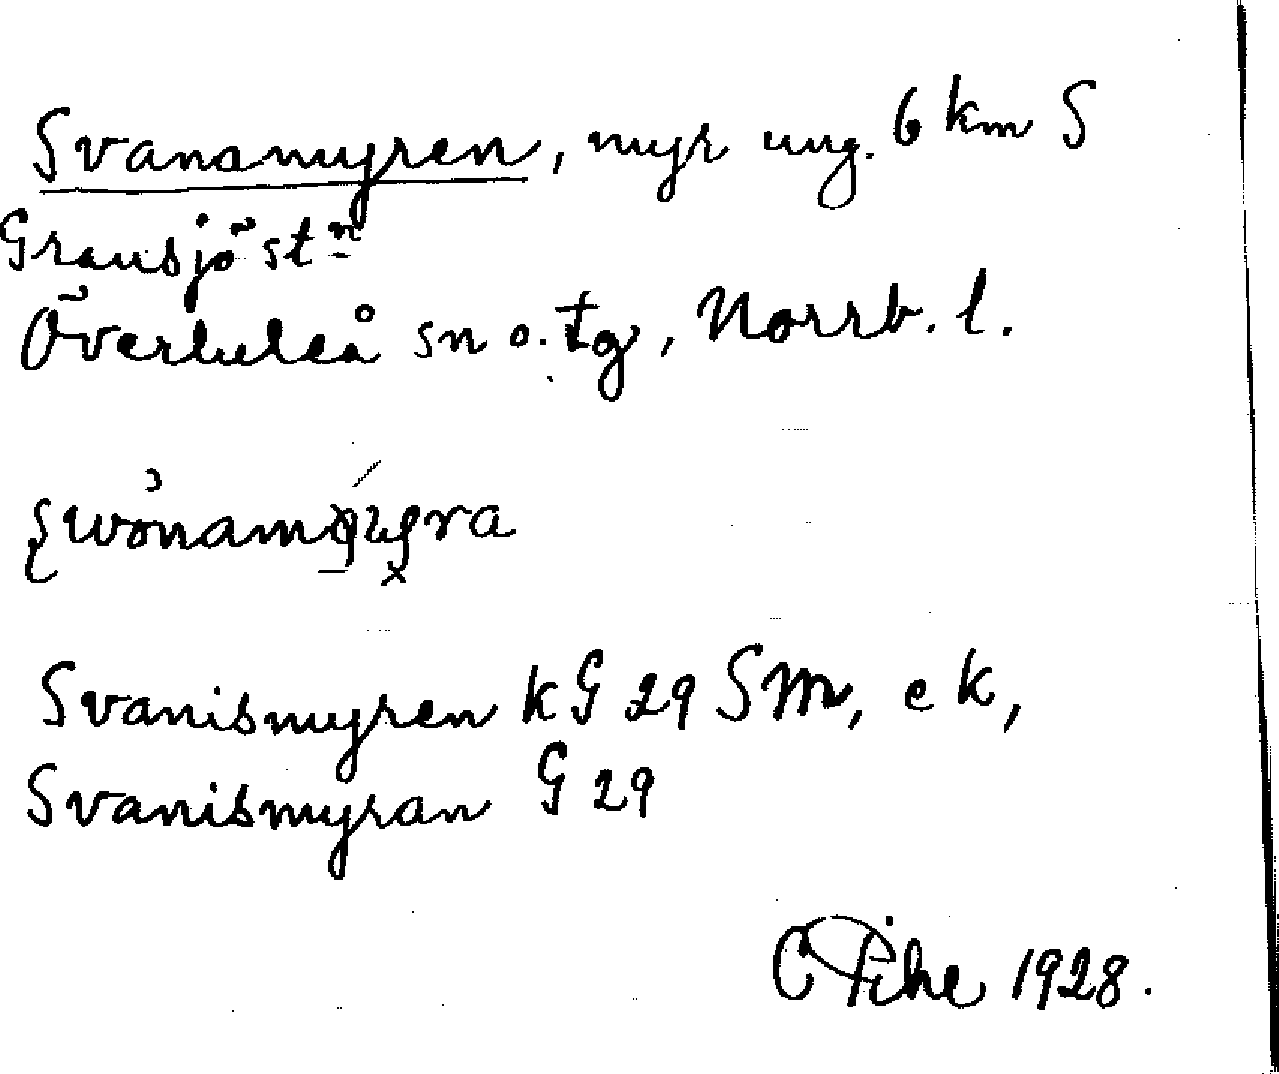 Svanamyren, myr ung. 6 km S
Gransjö stn
Överluleå sn o. tg, Norrb. l.
Svanismyren kG 29 SM, ek,
Svanismyran G 29
C Pihl 1928.